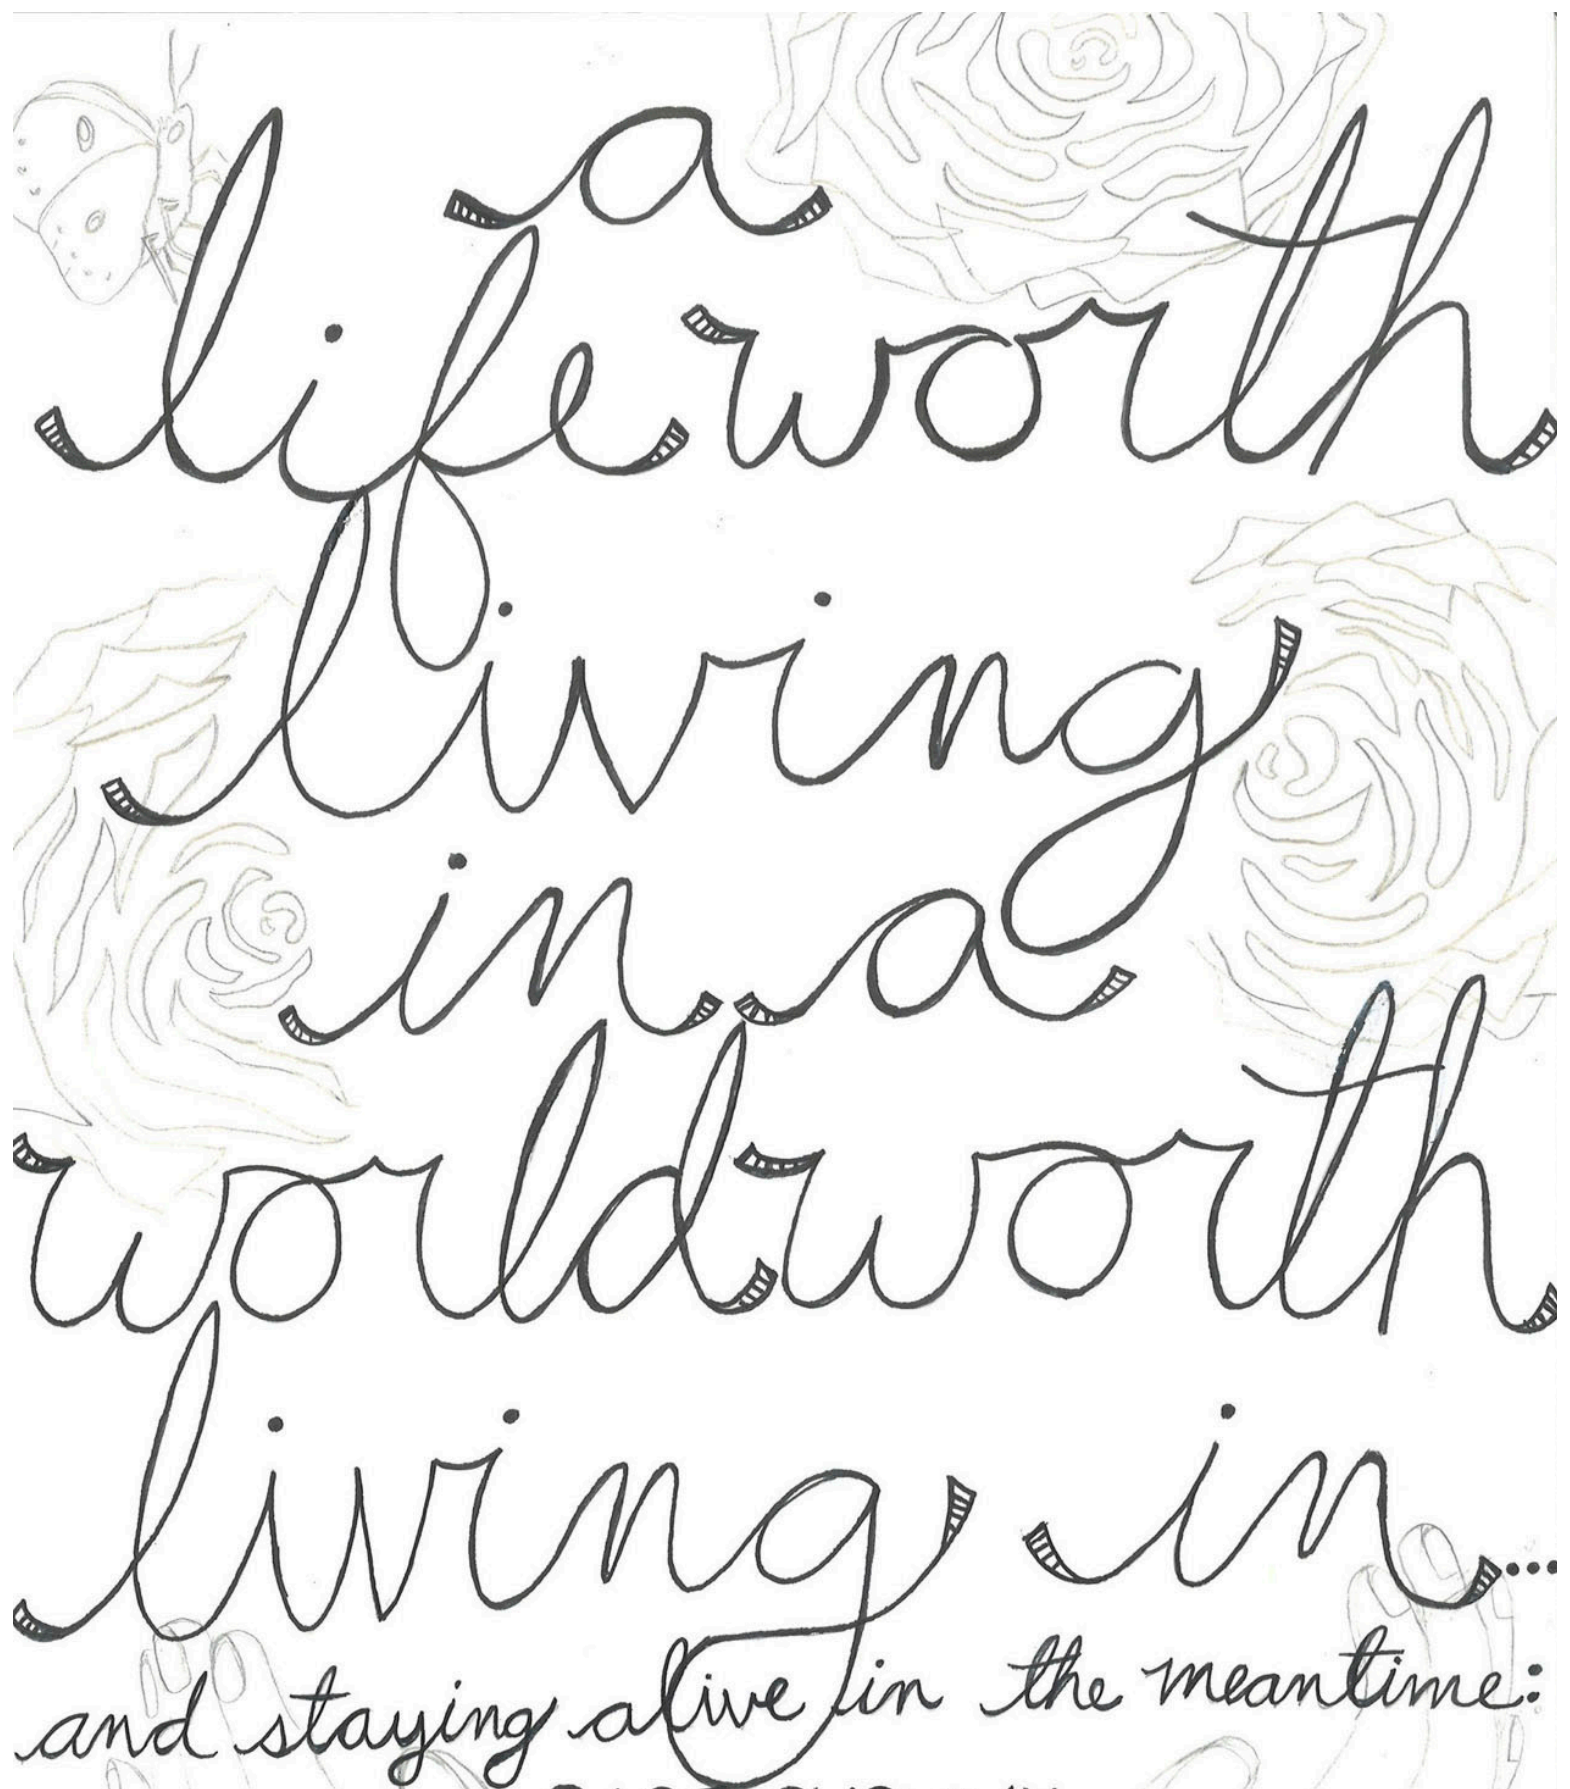 a
life worth
living
in a
world worth
living in....
and staying alive in the meantime: